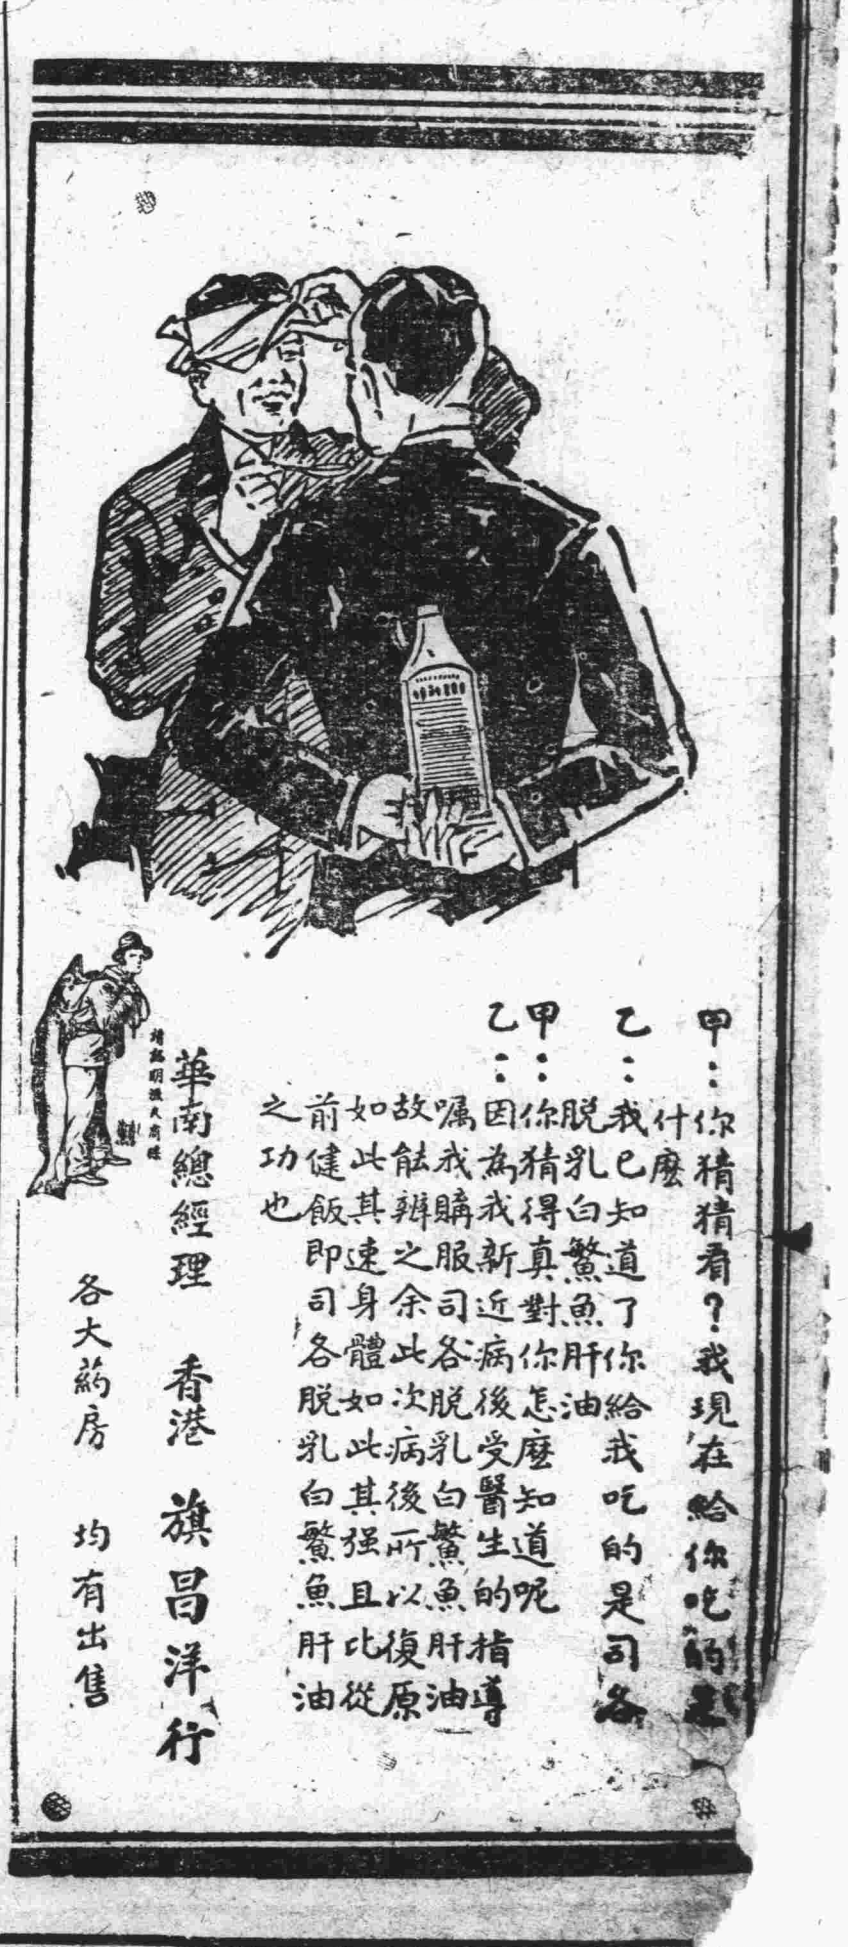 甲：你猜猜看？我現在給你吃的是
什麽
乙：我已知道了你給我吃的是司各
脱乳白鰵魚肝油
甲：你猜得真對你怎麽知道呢
乙：因為我新近病後受醫生的指導
嘱我購服司各脱乳白鰵魚肝油
故能辨之余此次病後所以復原
如此其速身體如此其强且比從
前健飯即司各脱乳白鰵魚肝油
之功也
請認明漁夫商標
華南總經理 香港 旗昌洋行
各大葯房 均有出售